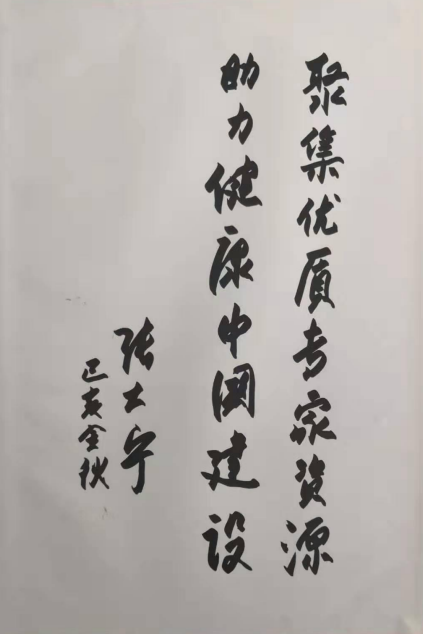 聚集优质专家资源
助力健康中国建设
张大宁
己亥金秋